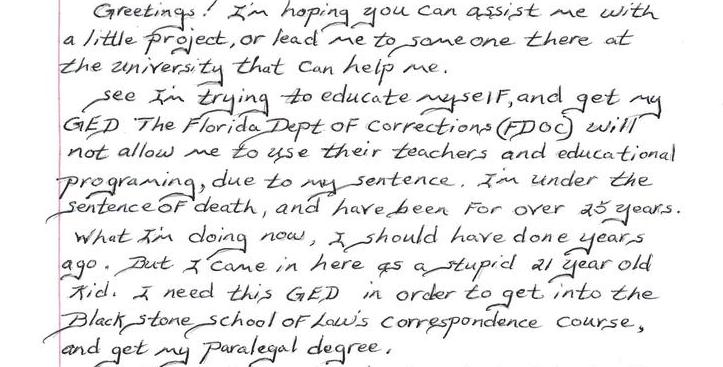 Greetings! I'm hoping you can assist me with
a little project, or lead me to someone there at
the university that can help me.
see I'm trying to educate myself, and get my
GED The Florida Dept of Corrections (FDOC) will
not allow me to use their teachers and educational
programing, due to my sentence. I'm under the
sentence of death, and have been for over 25 years.
What I'm doing now, I should have done years
ago. But I came in here as a stupid 21 year old
Kid. I need this GED in order to get into the
Blackstone school of Law's correspondence course,
and get my Paralegal degree.